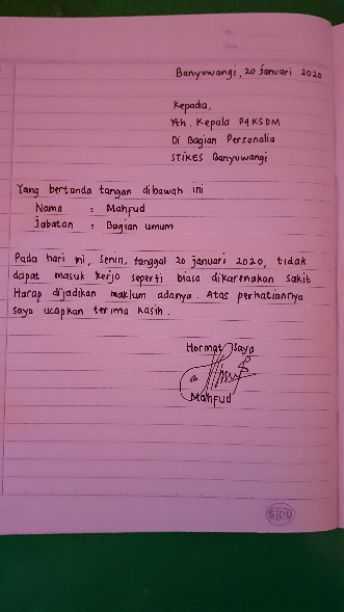 Banyuwangi, 20 Januari 2020
Kepada,
Yth. Kepala P4KSDM
Di Bagian Personalia
STIKES Banyuwangi
Yang bertanda tangan dibawah ini
Nama : Mahfud
Jabatan : Bagian umum
Pada hari ini, Senin, tanggal 20 januari 2020, tidak
dapat masuk kerja seperti biasa dikarenakan sakit
Harap dijadikan maklum adanya. Atas perhatiannya
saya ucapkan terima kasih.
Hormat Saya
Mahfud
SIDU